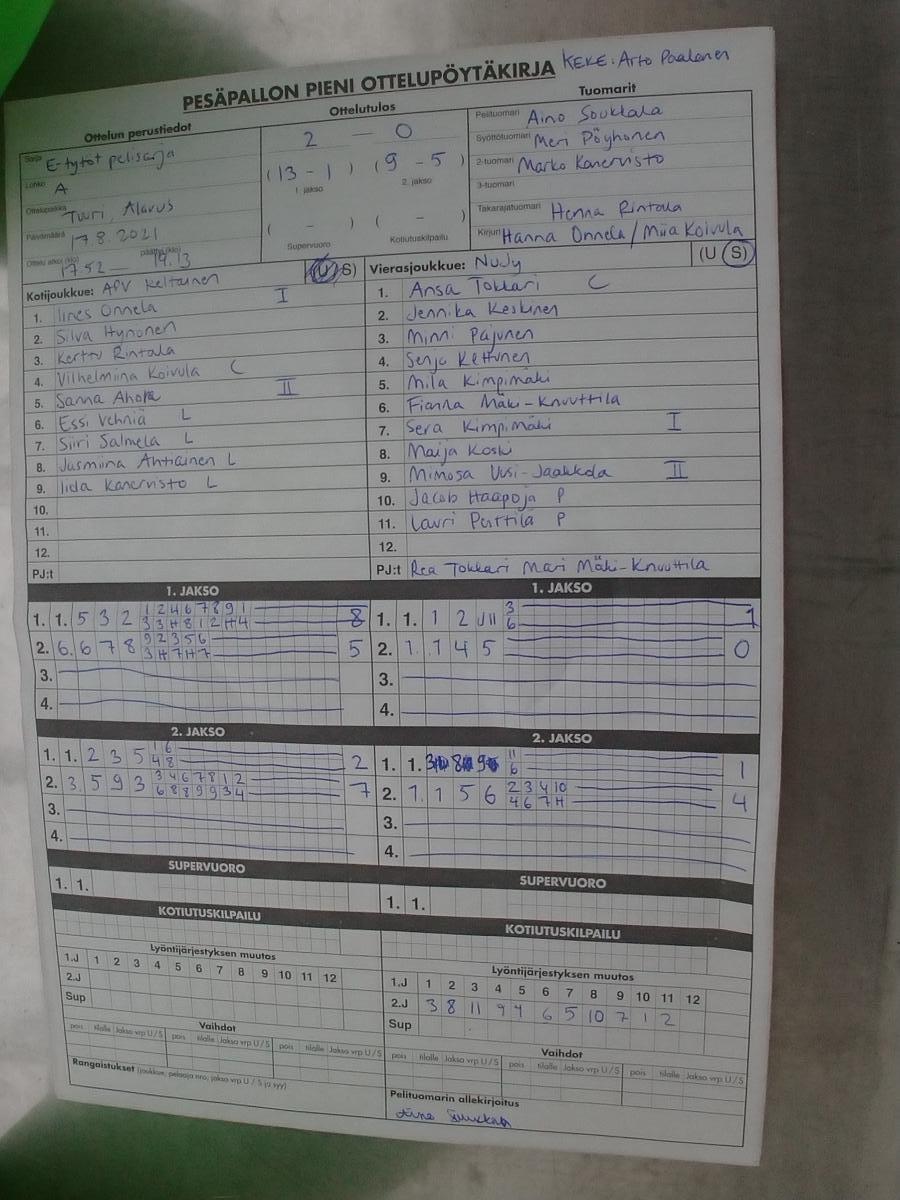 PESÄPALLON PIENI OTTELUPÖYTÄKIRJA KEKE: Arto Paalanen
Ottelun perustiedot
Sarja E-tytöt pelisarja
Lohko A
Ottelupaikka Tuuri, Alavus
Päivämäärä 17.8.2021
Ottelu alkoi (klo) 17.52 — päättyi (klo) 19.13
Ottelutulos
2 — 0
(13 - 1) (9 - 5)
1. jakso 2. jakso
( - ) ( - )
Supervuoro Kotiutuskilpailu
Tuomarit
Pelituomari Aino Soukkala
Syöttötuomari Meri Pöyhönen
2-tuomari Marko Kanervisto
3-tuomari
Takarajatuomari Henna Rintala
Kirjuri Hanna Onnela / Miia Koivula
Kotijoukkue: APV Keltainen (U/S)
1. Iines Onnela I
2. Silva Hynönen
3. Kerttu Rintala
4. Vilhelmiina Koivula C
5. Sanna Ahola II
6. Essi Vehniä L
7. Siiri Salmela L
8. Jasmiina Ahtiainen L
9. Iida Kanervisto L
10.
11.
12.
PJ:t
Vierasjoukkue: NuJy (U S)
1. Ansa Tokkari C
2. Jennika Keskinen
3. Minni Pajunen
4. Senja Kettunen
5. Mila Kimpimäki
6. Fianna Mäki-Knuuttila
7. Sera Kimpimäki I
8. Maija Koski
9. Mimosa Uusi-Jaakkola II
10. Jacob Haapoja P
11. Lauri Perttilä P
12.
PJ:t Rea Tokkari Mari Mäki-Knuuttila
1. JAKSO
1. 1. 5 3 2 1 2 4 6 7 8 9 1 8
3 3 H 8 1 2 H 4
2. 6. 6 7 8 9 2 3 5 6 5
3 H 7 H 7
3.
4.
1. JAKSO
1. 1. 1 2 3 1
6
2. 1. 1 4 5 0
3.
4.
2. JAKSO
1. 1. 2 3 5 1 6 2
4 8
2. 3. 5 9 3 3 4 6 7 8 1 2 7
6 8 8 9 9 3 4
3.
4.
2. JAKSO
1. 1. 11 1
6
2. 7. 1 5 6 2 3 4 10 4
4 6 7 H
3.
4.
SUPERVUORO
1. 1.
SUPERVUORO
1. 1.
KOTIUTUSKILPAILU
Lyöntijärjestyksen muutos
1.J 1 2 3 4 5 6 7 8 9 10 11 12
2.J
Sup
Vaihdot
pois tilalle Jakso vrp U/S pois tilalle Jakso vrp U/S pois tilalle Jakso vrp U/S
Rangaistukset (joukkue, pelaaja nro, jakso vrp U / S ja syy)
KOTIUTUSKILPAILU
Lyöntijärjestyksen muutos
1.J 1 2 3 4 5 6 7 8 9 10 11 12
2.J 3 8 11 9 4 6 5 10 7 1 2
Sup
Vaihdot
pois tilalle Jakso vrp U/S pois tilalle Jakso vrp U/S pois tilalle Jakso vrp U/S
Pelituomarin allekirjoitus
Aino Soukkala